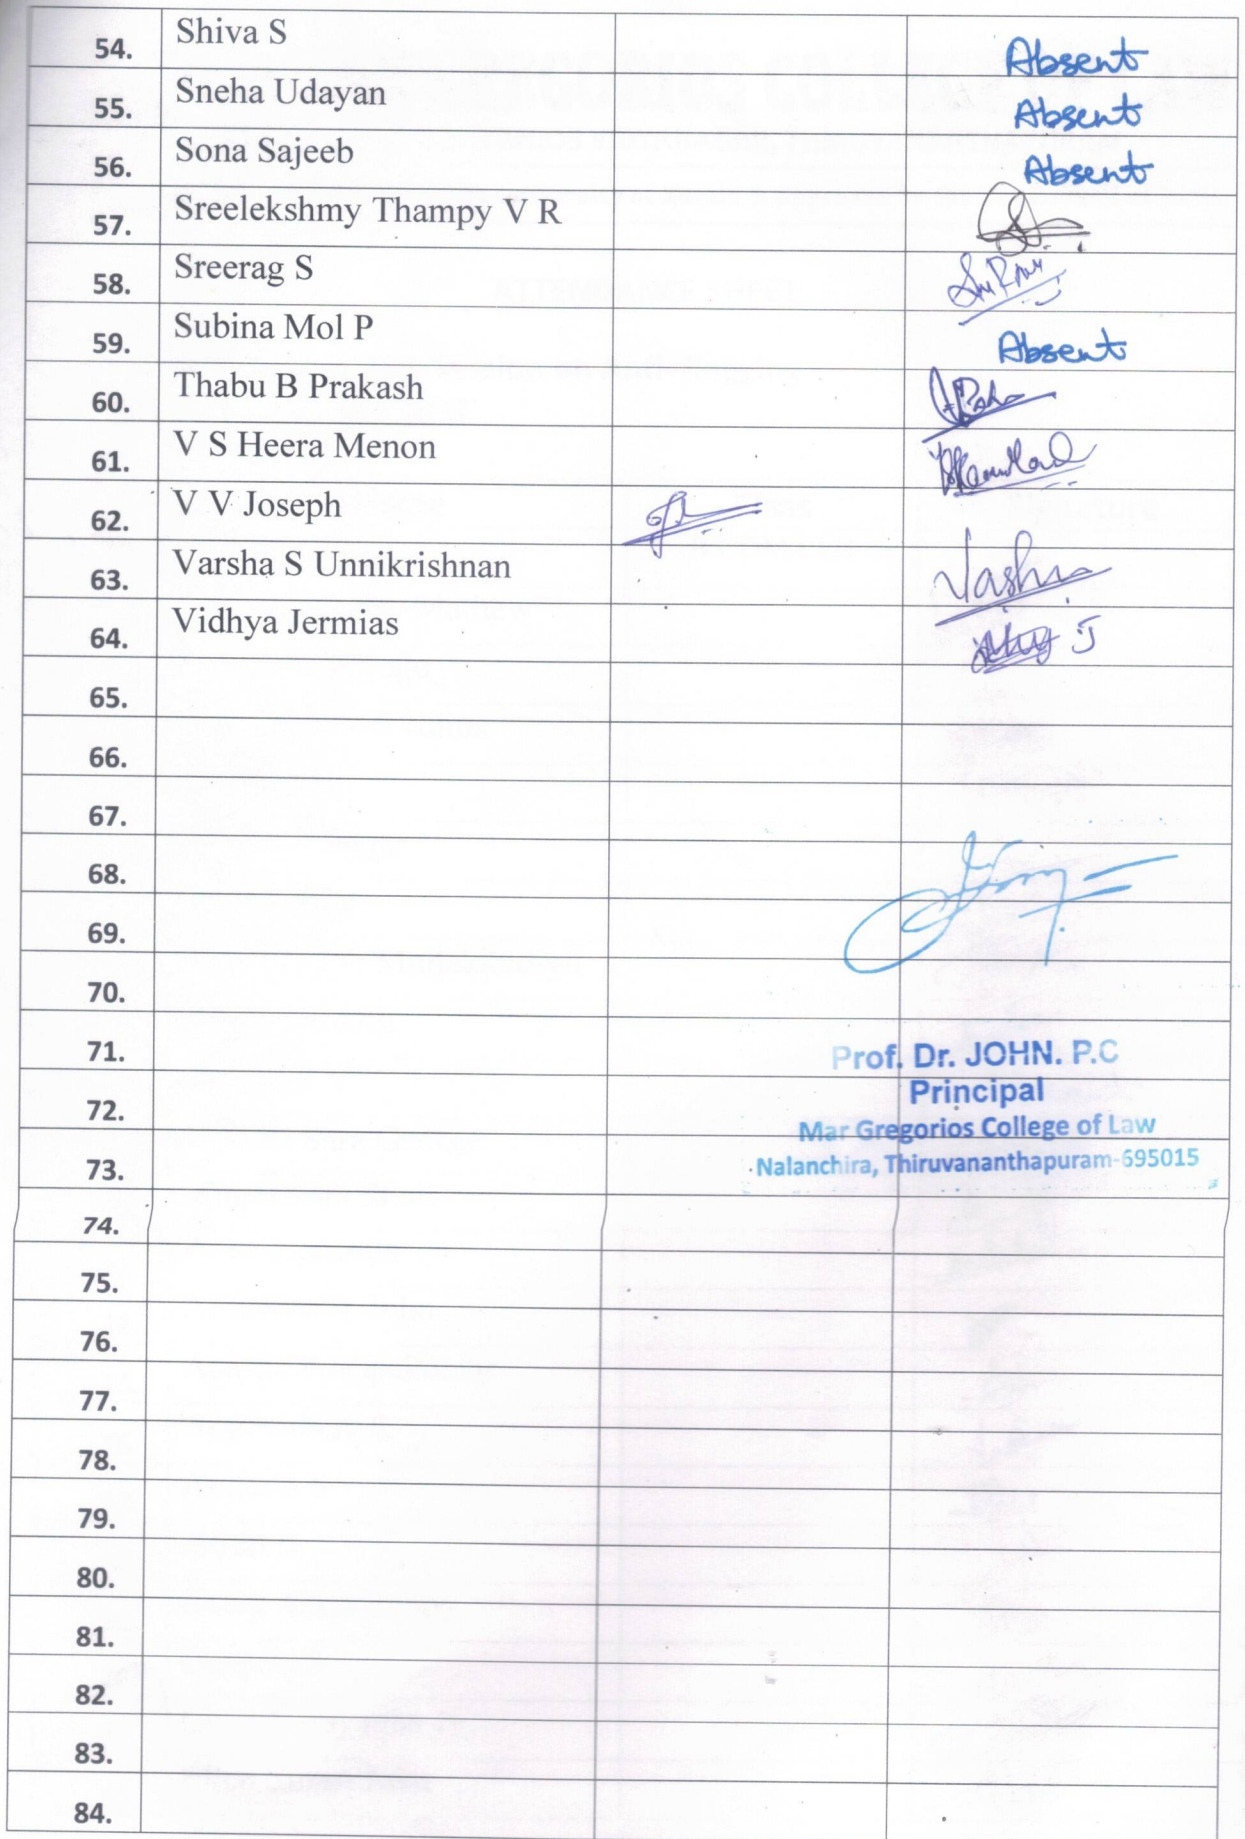 54. Shiva S Absent
55. Sneha Udayan Absent
56. Sona Sajeeb Absent
57. Sreelekshmy Thampy V R
58. Sreerag S
59. Subina Mol P Absent
60. Thabu B Prakash
61. V S Heera Menon
62. V V Joseph
63. Varsha S Unnikrishnan
64. Vidhya Jermias
65.
66.
67.
68.
69.
70.
71.
Prof. Dr. JOHN. P.C
72.
Principal
Mar Gregorios College of Law
73.
Nalanchira, Thiruvananthapuram-695015
74.
75.
76.
77.
78.
79.
80.
81.
82.
83.
84.